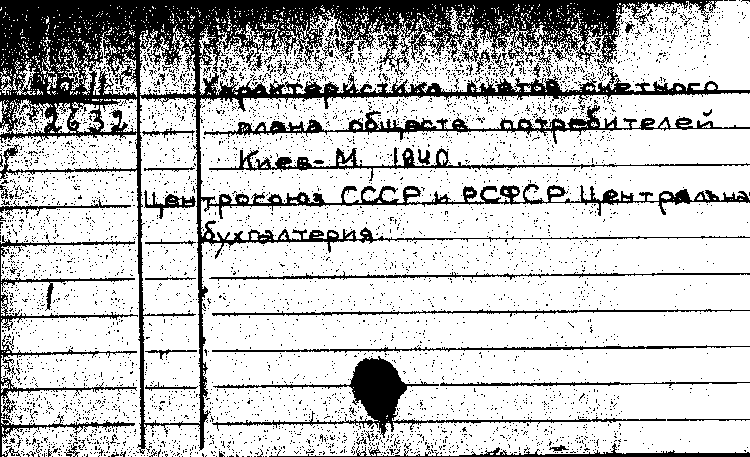 40-11
2632
Характеристика счетов счетного
плана обществ потребителей
Киев-М, 1940.
Центросоюз СССР и РСФСР. Центральна
бухгалтерия.
1